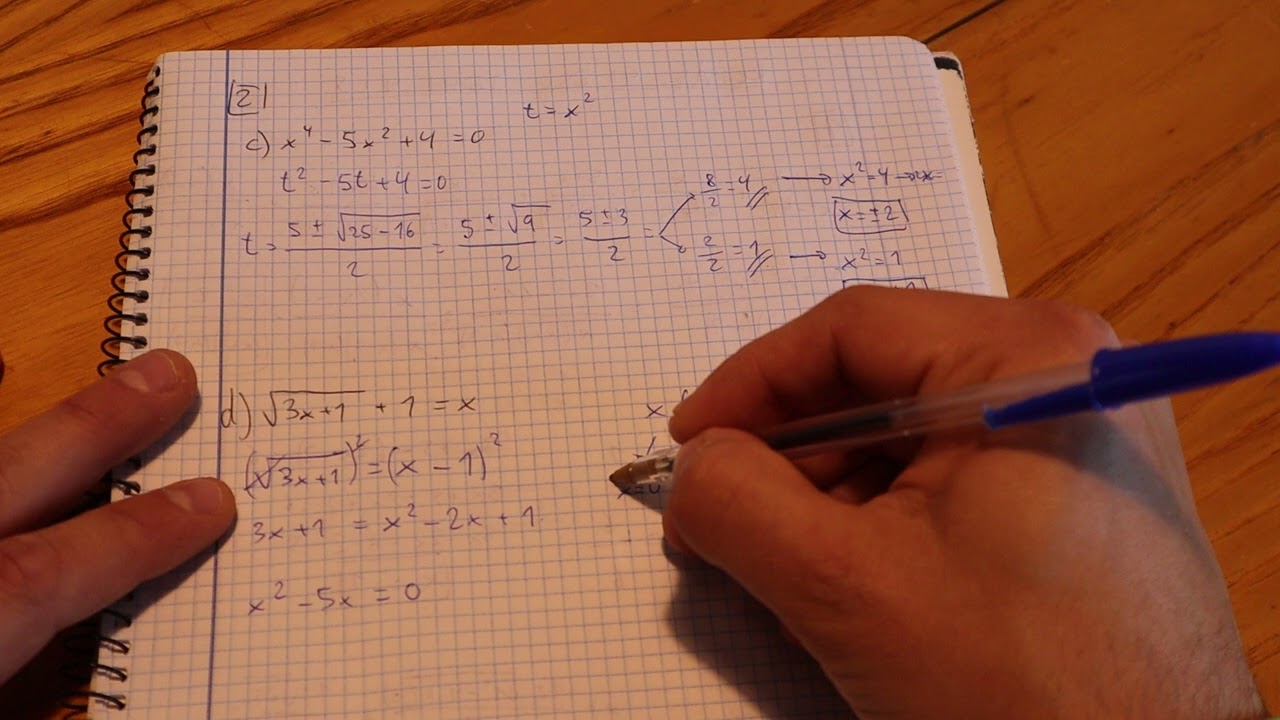 2
t = x²
c) x⁴ - 5x² + 4 = 0
t² - 5t + 4 = 0
t = (5 ± √(25 - 16))/2 = (5 ± √9)/2 = (5 ± 3)/2 =
8/2 = 4 → x² = 4 → x =
x = ±2
2/2 = 1 → x² = 1
d) √(3x+1) + 1 = x
(√(3x+1))² = (x - 1)²
3x + 1 = x² - 2x + 1
x² - 5x = 0
x
x=0